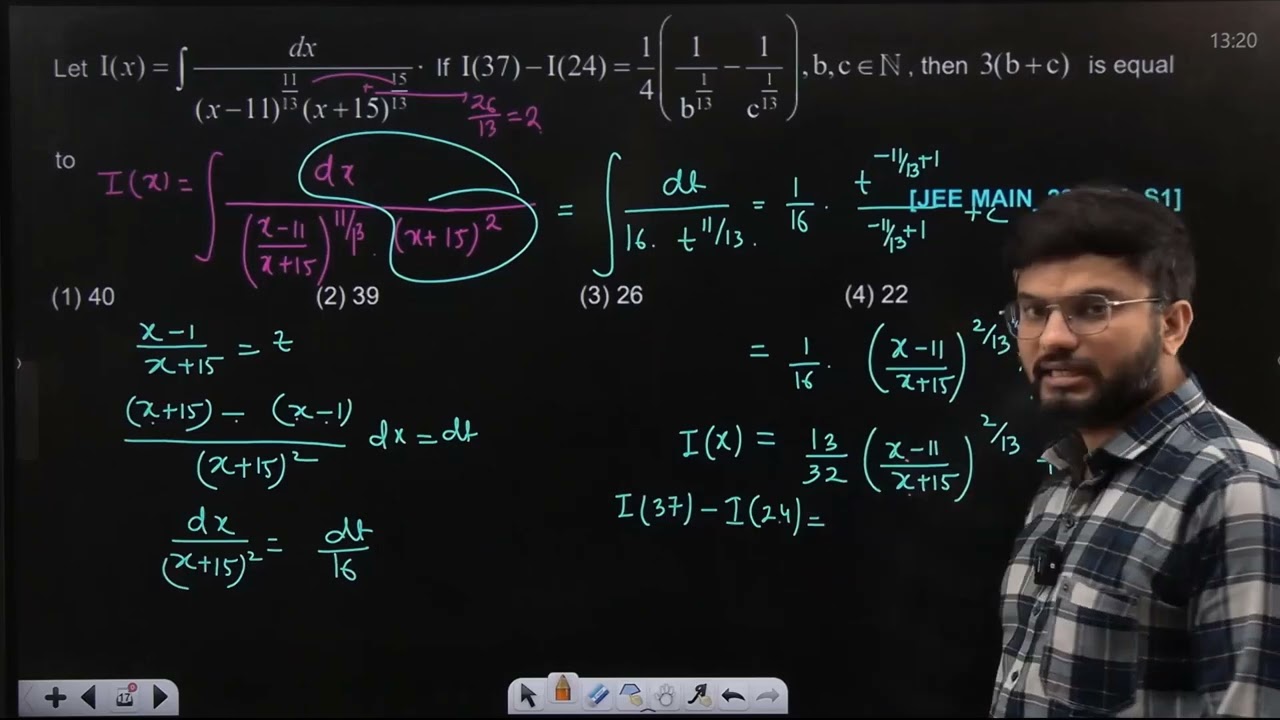 13:20
Let I(x) = ∫ dx / ((x−11)^(11/13) (x+15)^(15/13)) . If I(37) − I(24) = 1/4 ( 1/b^(1/13) − 1/c^(1/13) ), b, c ∈ ℕ, then 3(b+c) is equal
26/13 = 2
to
I(x) = ∫ dx / (((x−11)/(x+15))^(11/13) . (x+15)^2) = ∫ dt / (16. t^(11/13).) = 1/16 . t^(−11/13+1) / (−11/13+1) + c
[JEE MAIN S1]
(1) 40 (2) 39 (3) 26 (4) 22
(x−1)/(x+15) = t
((x+15) − (x−1)) / (x+15)^2 dx = dt
dx/(x+15)^2 = dt/16
= 1/16 . ((x−11)/(x+15))^(2/13)
I(x) = 13/32 ((x−11)/(x+15))^(2/13) +
I(37) − I(24) =
17